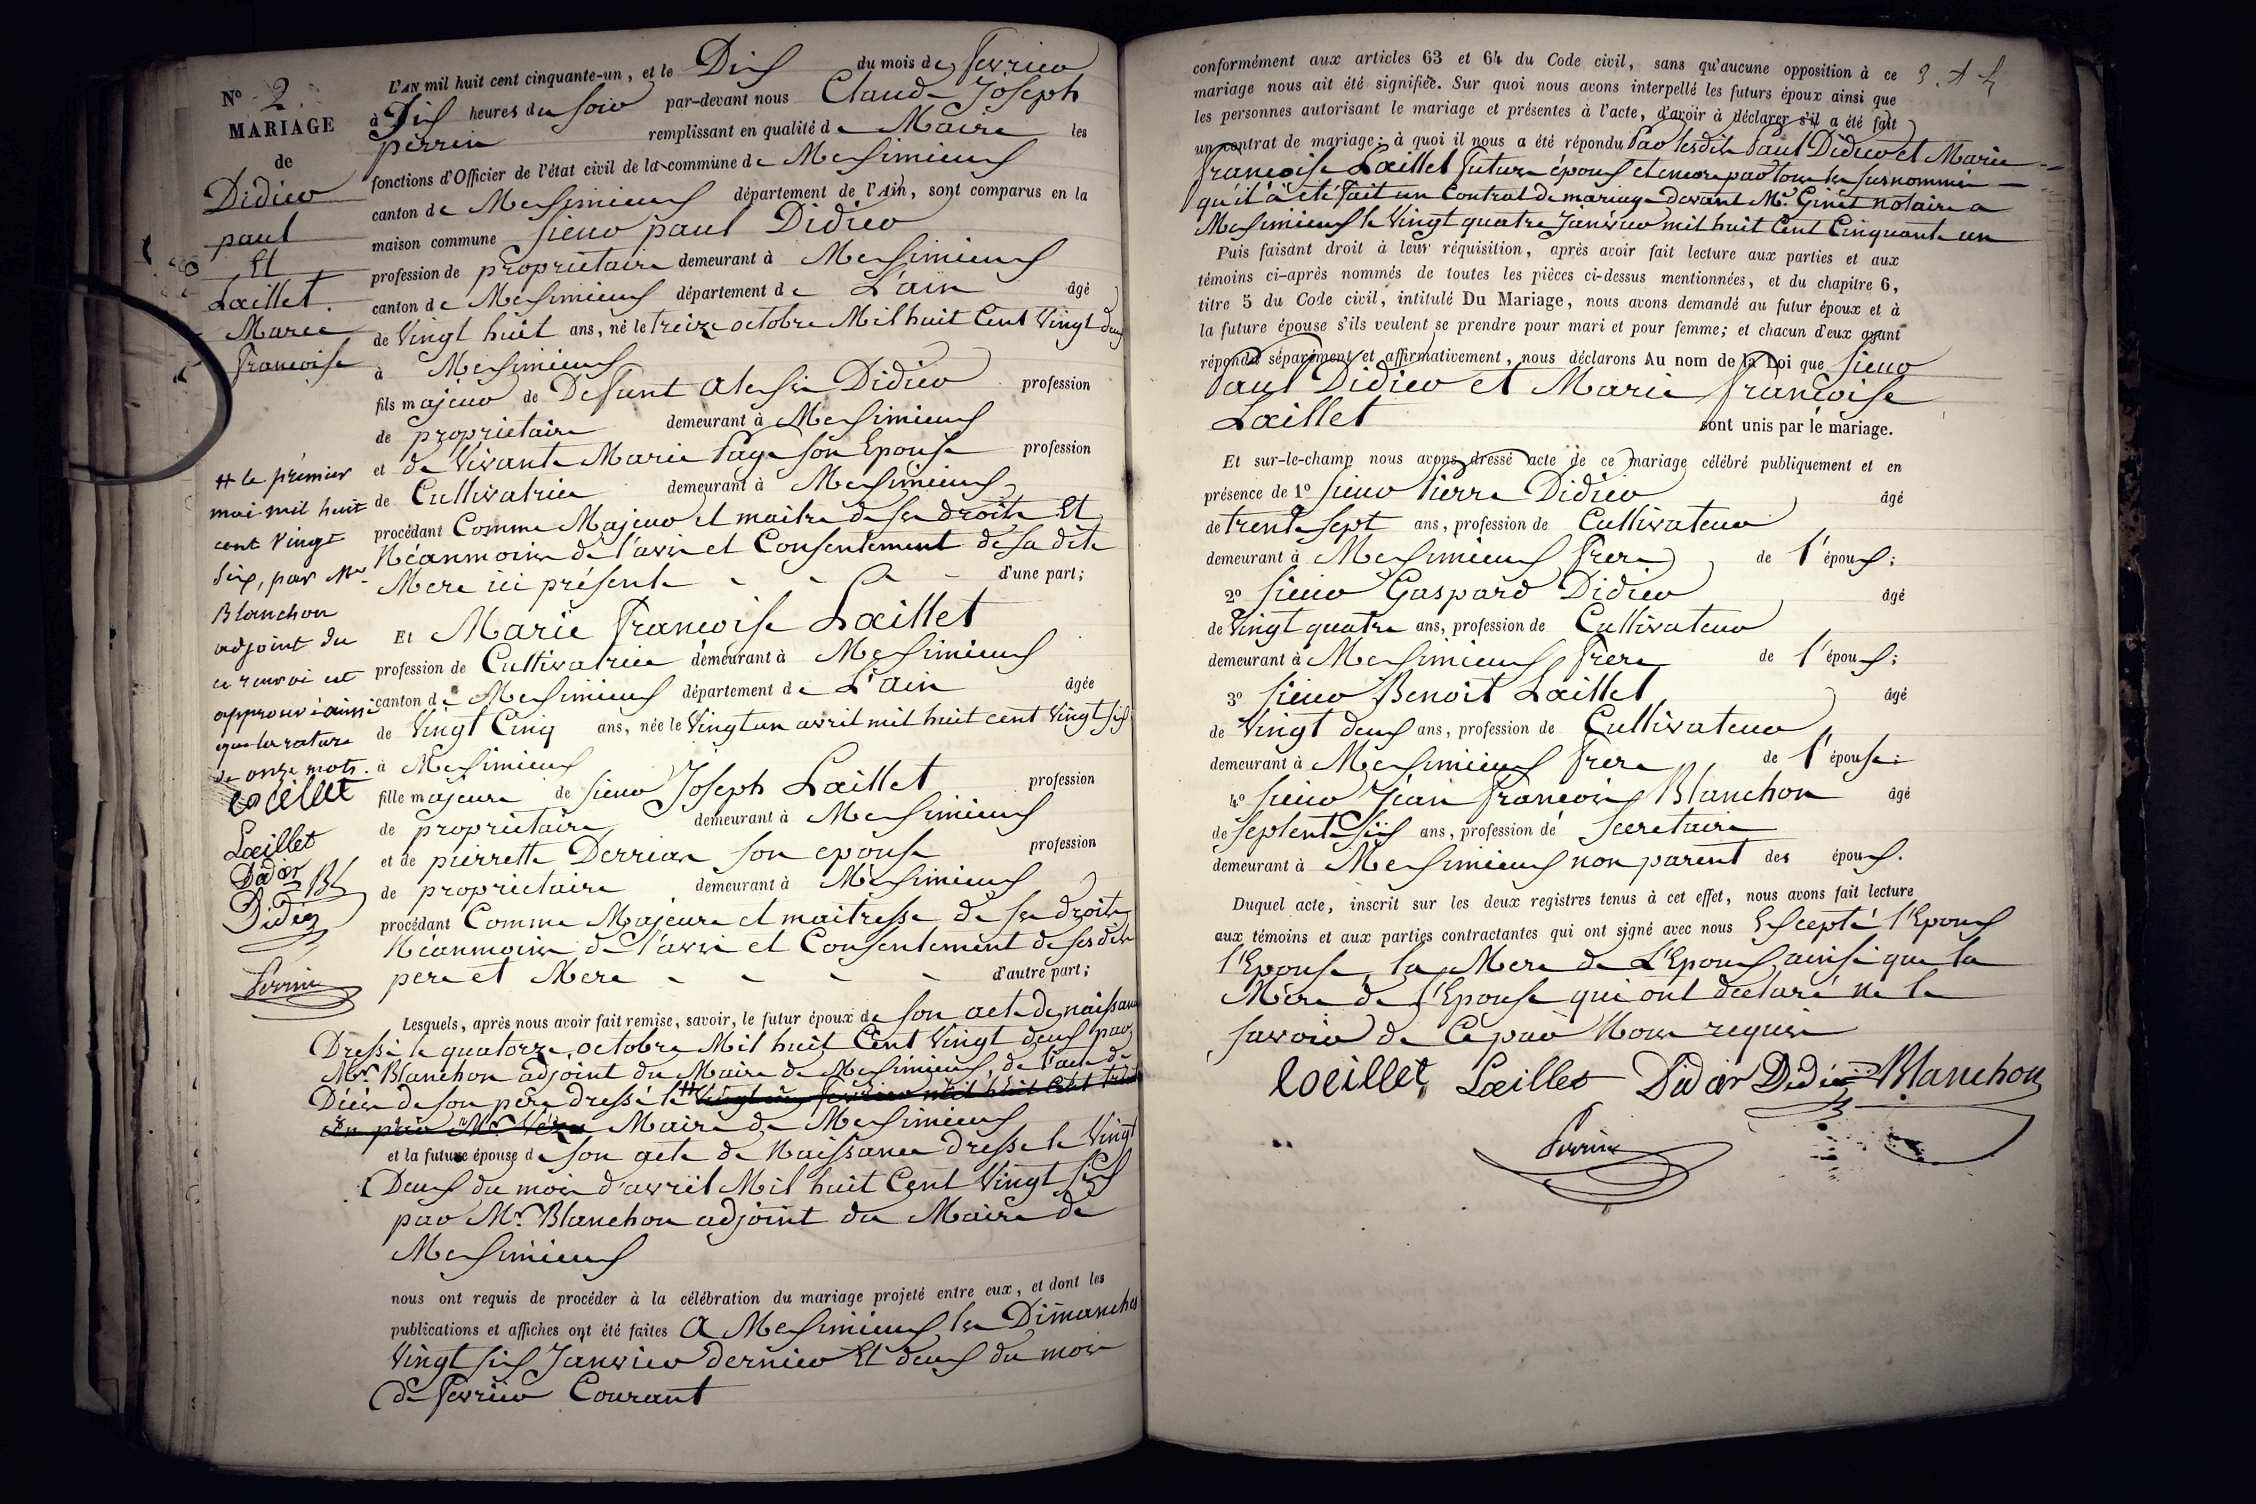 N° 2.
MARIAGE
de
Didier
paul
Et
Lœillet
Marie
francoise
L'AN mil huit cent cinquante-un, et le Dix du mois de fevrier
à Dix heures du soir par-devant nous Claude Joseph
perrin remplissant en qualité de Maire les
fonctions d'Officier de l'état civil de la commune de Meximieux
canton de Meximieux département de l'Ain, sont comparus en la
maison commune sieur paul Didier
profession de propriétaire demeurant à Meximieux
canton de Meximieux département de L'ain âgé
de Vingt huit ans, né le treize octobre Mil huit Cent Vingt deux
à Meximieux
fils majeur de Defunt alexis Didier profession
de propriétaire demeurant à Meximieux
et de Vivante Marie Page son Epouse profession
de Cultivatrice demeurant à Meximieux
procédant Comme Majeur et maitre de ses droits Et
Néanmoins de l'avis et Consentement de sa dite
Mere ici présente d'une part;
Et Marie francoise Lœillet
profession de Cultivatrice demeurant à Meximieux
canton de Meximieux département de L'ain âgée
de Vingt Cinq ans, née le Vingt un avril mil huit cent Vingt six
à Meximieux
fille majeure de sieur Joseph Lœillet profession
de propriétaire demeurant à Meximieux
et de pierrette Derrias son epouse profession
de propriétaire demeurant à Meximieux
procédant Comme Majeure et maitresse de ses droits
Néanmoins de l'avis et Consentement de ses dits
pere et Mere d'autre part;
Lesquels, après nous avoir fait remise, savoir, le futur époux de son acte de naissance
Dressé le quatorze octobre Mil huit Cent Vingt deux par
Mr. Blanchon adjoint du Maire de Meximieux, de l'acte de
Décès de son père dressé le # Vingt fevrier mil huit Cent
par Mr. Maire de Meximieux
et la future épouse de son acte de Naissance dressé le Vingt
Deux du mois d'avril Mil huit Cent Vingt Six
par Mr. Blanchon adjoint du Maire de
Meximieux
nous ont requis de procéder à la célébration du mariage projeté entre eux, et dont les
publications et affiches ont été faites A Meximieux les Dimanches
Vingt six Janvier dernier Et deux du mois
de fevrier Courant
# le premier
mai mil huit
cent vingt
six, par Mr.
Blanchon
adjoint du
ce renvoi est
approuvé ainsi
que la rature
de onze mots.
loeillet
Lœillet
Didier
Bl
Didier
Perrin
conformément aux articles 63 et 64 du Code civil, sans qu'aucune opposition à ce
mariage nous ait été signifiée. Sur quoi nous avons interpellé les futurs époux ainsi que
les personnes autorisant le mariage et présentes à l'acte, d'avoir à déclarer s'il a été fait
un contrat de mariage; à quoi il nous a été répondu Par lesdits Paul Didier et Marie
françoise Lœillet future époux et encore par tous les surnommés
qu'il a été fait un Contrat de mariage devant Mr. Ginet notaire a
Meximieux le Vingt quatre Janvier mil huit Cent Cinquante un
Puis faisant droit à leur réquisition, après avoir fait lecture aux parties et aux
témoins ci-après nommés de toutes les pièces ci-dessus mentionnées, et du chapitre 6,
titre 5 du Code civil, intitulé Du Mariage, nous avons demandé au futur époux et à
la future épouse s'ils veulent se prendre pour mari et pour femme; et chacun d'eux ayant
répondu séparément et affirmativement, nous déclarons Au nom de la Loi que sieur
Paul Didier et Marie françoise
Lœillet sont unis par le mariage.
Et sur-le-champ nous avons dressé acte de ce mariage célébré publiquement et en
présence de 1° sieur Pierre Didier âgé
de trente sept ans, profession de Cultivateur
demeurant à Meximieux frere de l'époux;
2° sieur Gaspard Didier âgé
de Vingt quatre ans, profession de Cultivateur
demeurant à Meximieux frere de l'époux;
3° sieur Benoit Lœillet âgé
de Vingt deux ans, profession de Cultivateur
demeurant à Meximieux frere de l'épouse;
4° sieur Jean francois Blanchon âgé
de septente six ans, profession de Secretaire
demeurant à Meximieux non parent des époux.
Duquel acte, inscrit sur les deux registres tenus à cet effet, nous avons fait lecture
aux témoins et aux parties contractantes qui ont signé avec nous Excepté l'Epoux
l'Epouse, la Mere de L'Epoux, ainsi que la
Mère de l'Epouse qui ont déclaré ne le
savoir de Ce par Nous requis
loeillet Lœillet Didier Didier Blanchon
Perrin